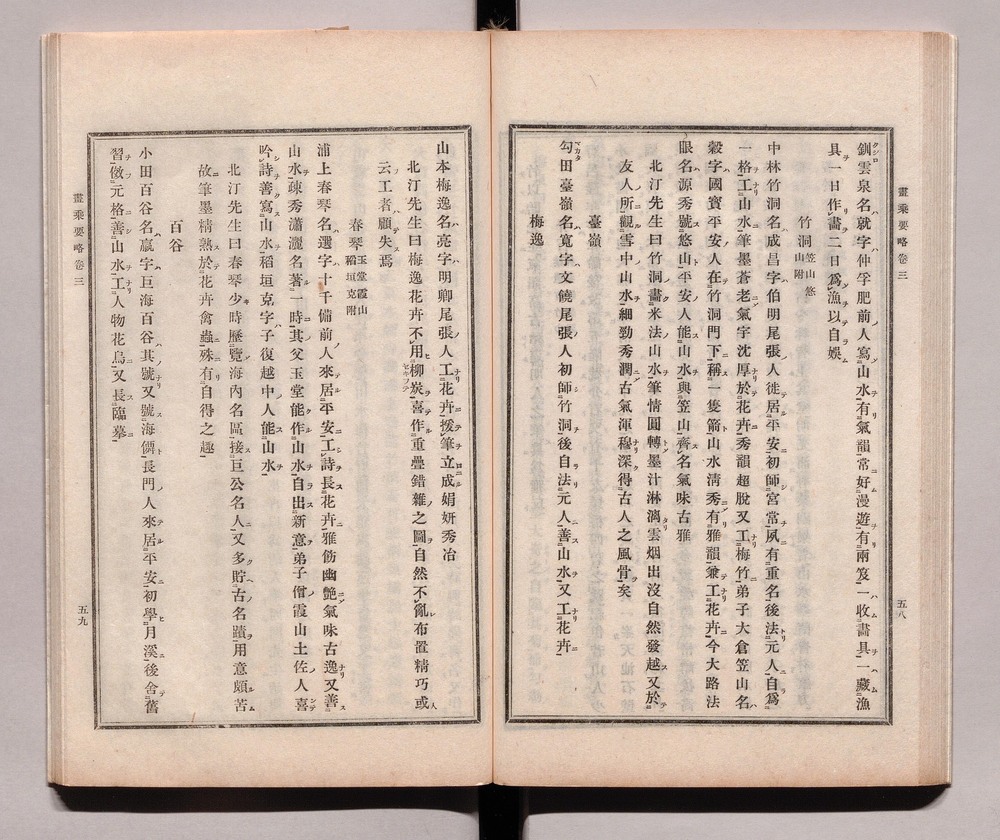 畫乘要略卷三
五八
釧雲泉名就字仲孚肥前人寫山水有氣韻常好漫遊有兩笈一收畫具一藏漁
具一日作畫二日爲漁以自娛
竹洞 笠山 悠山 附
中林竹洞名成昌字伯明尾張人徙居平安初師宮常夙有重名後法元人自爲
一格工山水筆墨蒼老氣宇沈厚於花卉秀韻超脫又工梅竹弟子大倉笠山名
穀字國寶平安人在竹洞門下稱一隻箭山水淸秀有雅韻兼工花卉今大路法
眼名源秀號悠山平安人能山水與笠山齊名氣味古雅
北汀先生曰竹洞畫米法山水筆情圓轉墨汁淋漓雲烟出沒自然發越又於
友人所觀雪中山水細勁秀潤古氣渾穆深得古人之風骨矣
臺嶺
勾田臺嶺名寬字文饒尾張人初師竹洞後自法元人善山水又工花卉
梅逸
山本梅逸名亮字明卿尾張人工花卉援筆立成娟姸秀冶
北汀先生曰梅逸花卉不用柳炭喜作重疊錯雜之圖自然不亂布置精巧或
云工者顧失焉
春琴 玉堂 霞山 稻垣克附
浦上春琴名選字十千備前人來居平安工詩長花卉雅飭幽艶氣味古逸又善
山水疎秀瀟灑名著一時其父玉堂能作山水自出新意弟子僧霞山土佐人喜
吟詩善寫山水稻垣克字子復越中人能山水
北汀先生曰春琴少時歷覽海內名區接巨公名人又多貯古名蹟用意頗苦
故筆墨精熟於花卉禽蟲殊有自得之趣
百谷
小田百谷名嬴字巨海百谷其號又號海僊長門人來居平安初學月溪後舍舊
習倣元格善山水工人物花鳥又長臨摹
畫乘要略卷三
五九